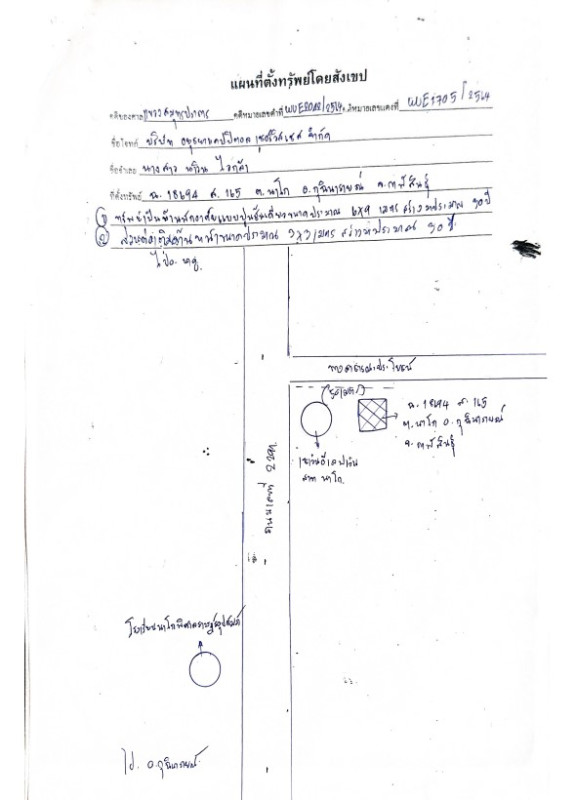 แผนที่ตั้งทรัพย์โดยสังเขป
คดีของศาล แขวงสมุทรปราการ คดีหมายเลขดำที่ /2564 คดีหมายเลขแดงที่ ผบE1705/2564
ชื่อโจทก์ บริษัท อยุธยาแคปปิตอล เซอร์วิสเซส จำกัด
ชื่อจำเลย นางสาว
ที่ตั้งทรัพย์ ฉ. 18694 ส. 165 ต. นาโก อ. กุฉินารายณ์ จ. กาฬสินธุ์
① ทรัพย์เป็นบ้านพักอาศัยแบบปูนชั้นเดียวขนาดประมาณ 6x9 เมตร สร้างมาประมาณ 30 ปี
② ส่วนต่อเติมด้านหน้าขนาดประมาณ 3x3 เมตร สร้างมาประมาณ 30 ปี
ไป อ.
ทางสาธารณประโยชน์
ฉ. 18694 ส. 165
ต. นาโก อ. กุฉินารายณ์
จ. กาฬสินธุ์
สาขา นาโก
ถนน
โรงเรียนนาโกพิศาลราษฎร์อุปถัมภ์
ไป อ. กุฉินารายณ์